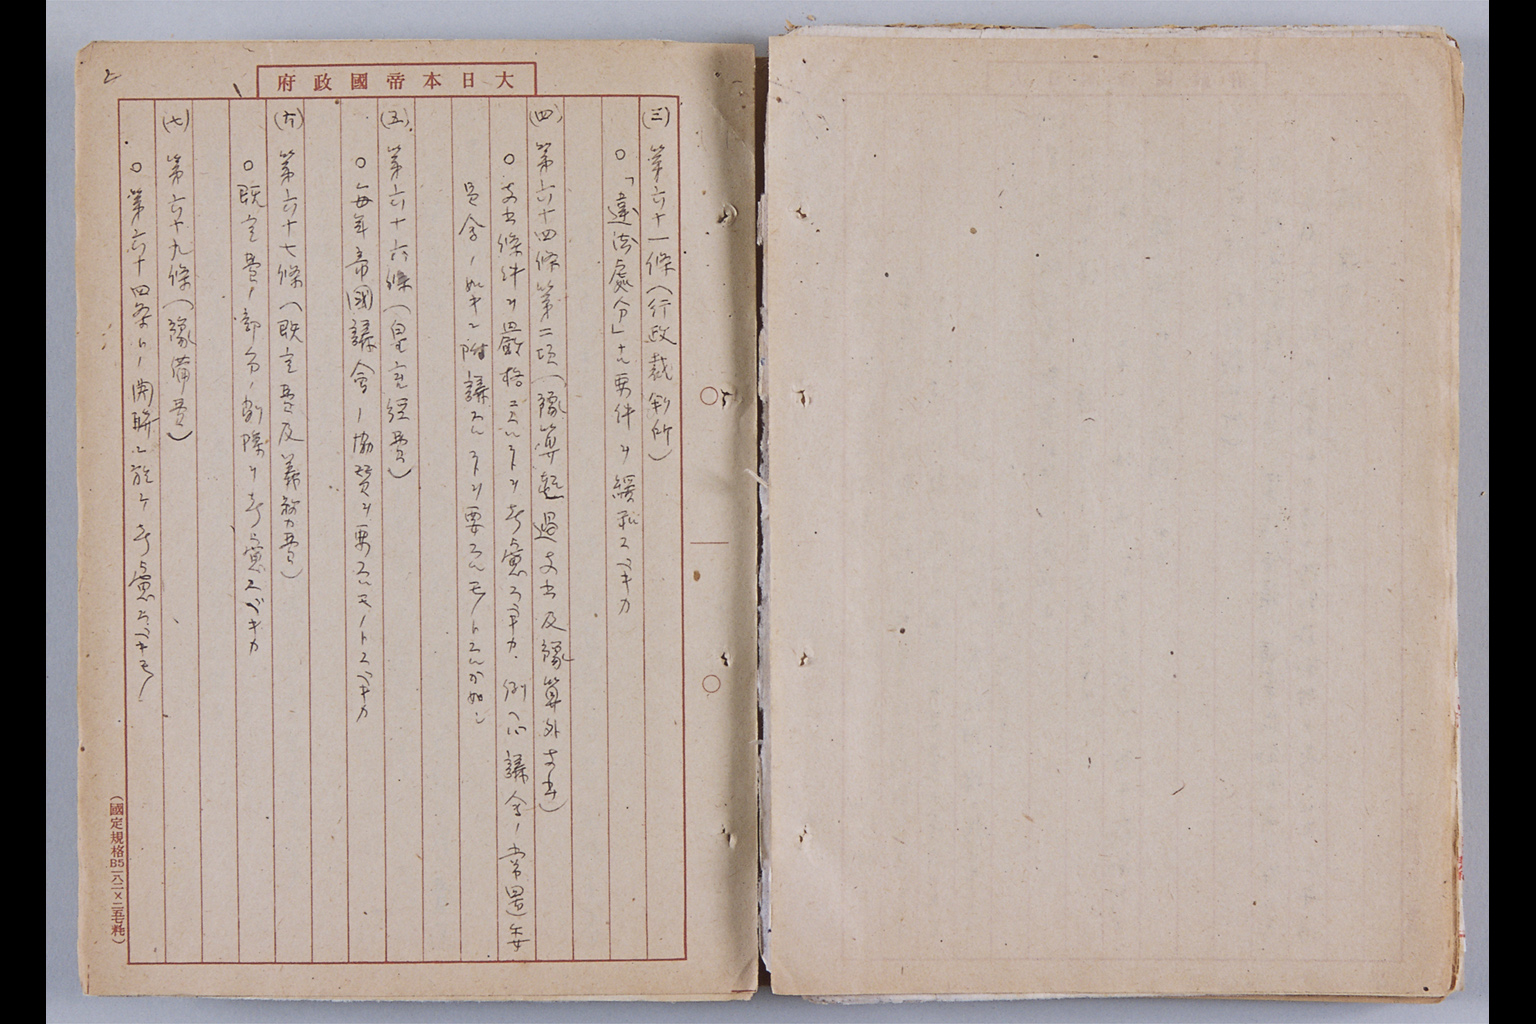 大日本帝國政府
(三) 第六十一條(行政裁判所)
○「違法處分」ナル要件ヲ緩和スベキカ
(四) 第六十四條第二項(豫算超過支出及豫算外支出)
○支出條件ヲ嚴格ニスルコトヲ考慮スベキカ、例ヘバ議會ノ常置委
員會ノ如キニ附議スルコトヲ要スルモノトスルガ如シ
(五) 第六十六條(皇室經費)
○毎年帝國議會ノ協賛ヲ要スルモノトスベキカ
(六) 第六十七條(既定費及義務費)
○既定費ノ部分ノ削除ヲ考慮スベキカ
(七) 第六十九條(豫備費)
○第六十四条トノ関聯ニ於テ考慮スベキモノ
(國定規格B5一八二×二五七粍)